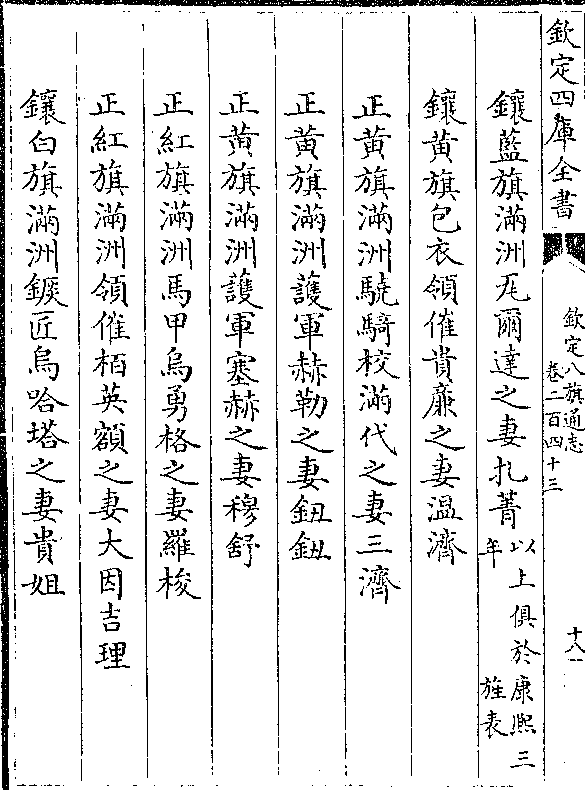 欽定四庫全書
欽定八旗通志
卷二百四十三
十八
鑲藍旗滿洲尾爾達之妻扎菁以上俱於康熙三年旌表
鑲黃旗包衣領催貴廉之妻溫濟
正黃旗滿洲驍騎校滿代之妻三濟
正黃旗滿洲護軍赫勒之妻鈕鈕
正黃旗滿洲護軍塞赫之妻穆舒
正紅旗滿洲馬甲烏勇格之妻羅梭
正紅旗滿洲領催栢英額之妻大因吉理
鑲白旗滿洲鏃匠烏哈塔之妻貴姐